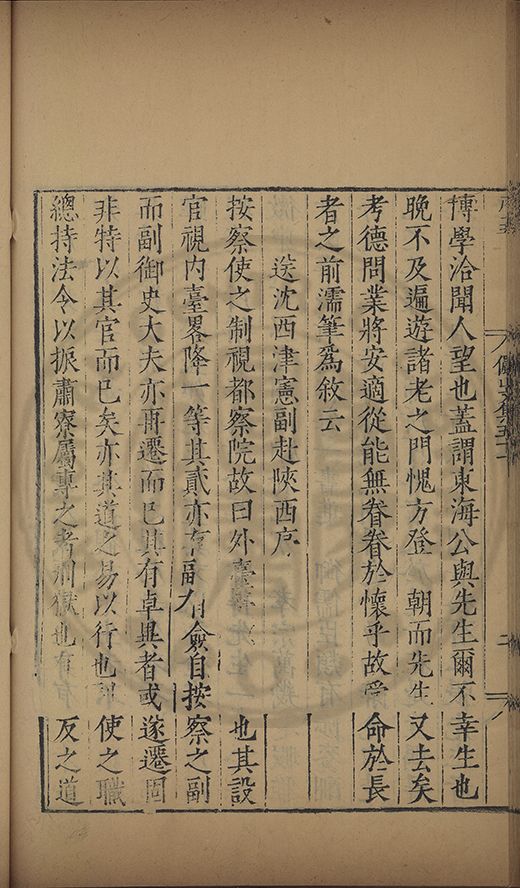 博學洽聞人望也蓋謂東海公與先生爾不幸生也
晚不及遍遊諸老之門愧方登朝而先生又去矣
考德問業將安適從能無眷眷於懷乎故當命於長
者之前濡筆爲敘云
送沈西津憲副赴陝西序
按察使之制視都察院故曰外臺也其設
官視内臺畧降一等其貳亦有副有僉自按察之副
而副御史大夫亦再遷而已其有卓異者或遂遷固
非特以其官而已矣亦其道之易以行也使之職
總持法令以振肅寮屬專之者刑獄也有反之道